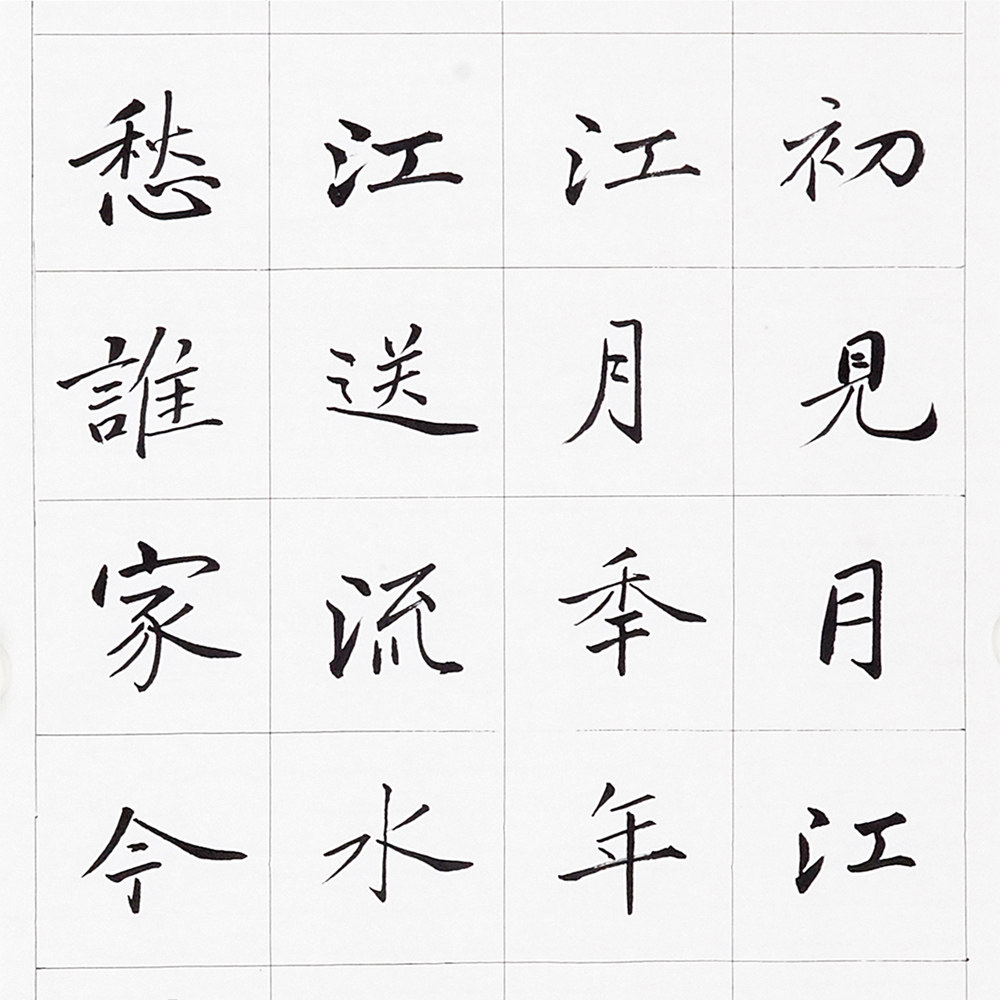 初見月江
江月秊年
江送流水
愁誰家今